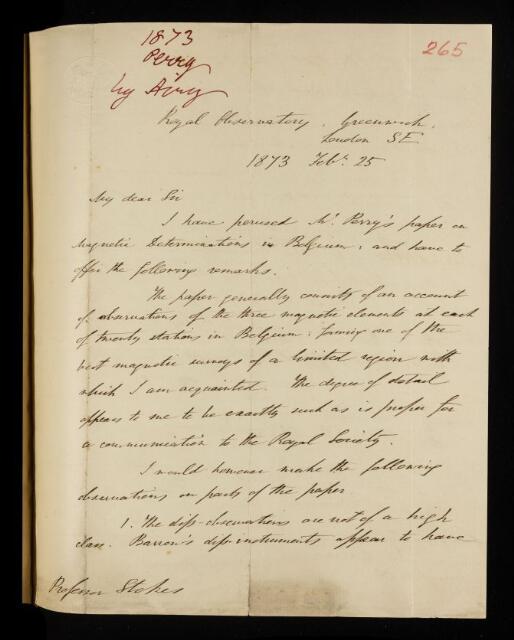 1873
Perry
by Airy
265
Royal Observatory, Greenwich,
London SE
1873 Feby. 25
My dear Sir
I have perused Mr. Perry's paper on
Magnetic Determinations in Belgium; and have to
offer the following remarks.
The paper generally consists of an account
of observations of the three magnetic elements at each
of twenty stations in Belgium: forming one of the
best magnetic surveys of a limited region with
which I am acquainted. The degree of detail
appears to me to be exactly such as is proper for
a communication to the Royal Society.
I would however make the following
observations on parts of the paper
1. The dip-observations are not of a high
class. Barrow's dip-instruments appear to have
Professor Stokes